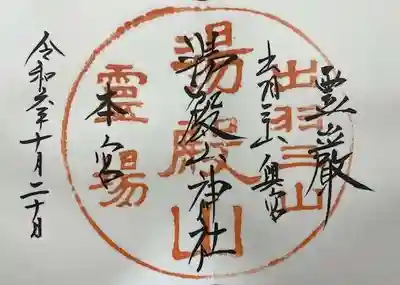 霊厳
出羽三山
出羽三山奥宮
湯殿山
湯殿山神社
靈場
本宮
令和六年十月二十日